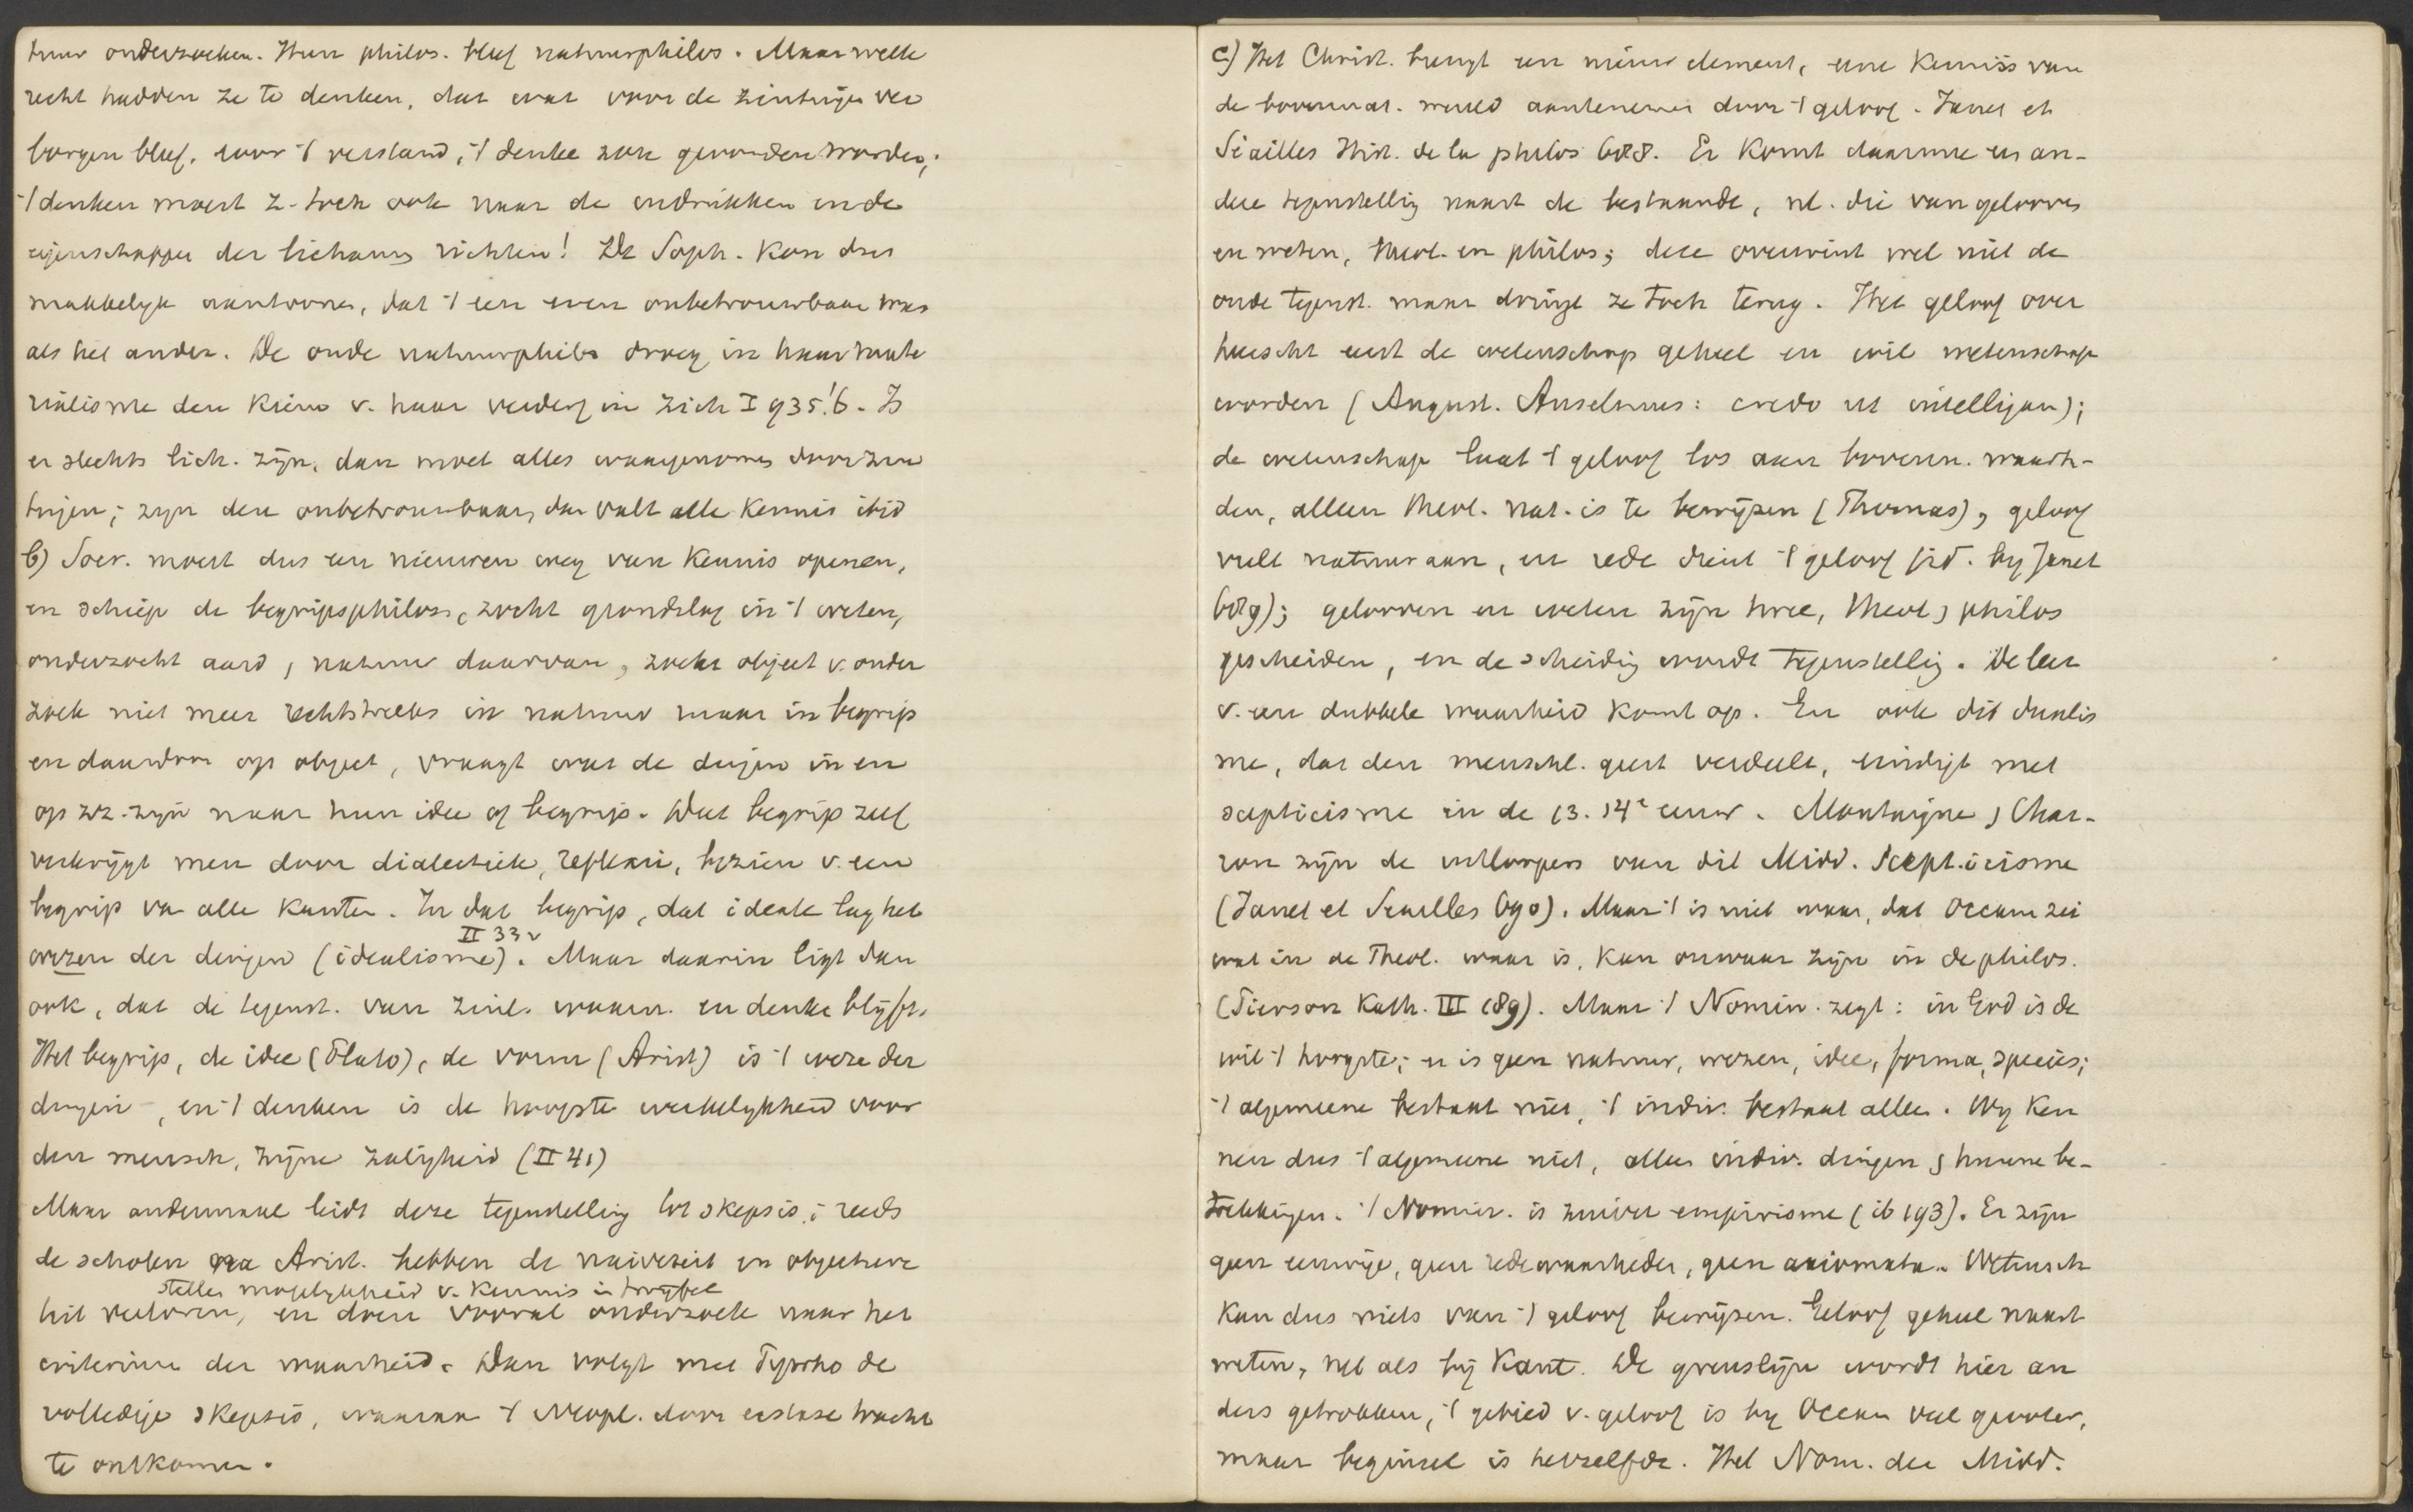 tuur onderzoeken. Hun philos. bleef natuurphilos. Maar welk
recht hadden ze te denken, dat wat voor de zintuigen ver
borgen bleef, voor 't verstand, 't denke zou gevonden worden;
't denken moest z. toch ook naar de indrukken en de
eigenschappen der lichamen richten! De Soph. kon dus
makkelyk aantoonen, dat 't een even onbetrouwbaar was
als het ander. De oude natuurphilos droeg in haar mate
rialisme den kiem v. haar verderf in zich I 935!6. Is
er slechts lich. zijn, dan moet alles waargenomen door zin
tuigen; zijn deze onbetrouwbaar, dan valt alle kennis ibid
b) Socr. moest dus een nieuwen weg van kennis openen,
en schiep de begripsphilos, zocht grondslag in 't weten,
onderzocht aard, natuur daarvan, zocht object v. onder
zoek niet meer rechtstreeks in natuur maar in begrip
en daardoor op object, vraagt wat de dingen in en
op zz. zijn naar hun idee of begrip. Dat begrip zelf
verkrijgt men door dialectiek, reflexie, bezien v. een
begrip van alle kanten. In dat begrip, dat ideale lag het
II 33v
wezen der dingen (idealisme). Maar daarin ligt dan
ook, dat de tegenst. van zinl. waarn. en denke blijft.
Het begrip, de idee (Plato), de vorm (Arist) is 't weze der
dingen, en 't denken is de hoogste werkelykheid voor
den mensch, zijne zaligheid (II 41)
Maar andermaal leidt deze tegenstelling tot skepsis; reeds
de scholen na Arist. hebben de naiveteit en objectieve
stellen mogelykheid v. kennis in twyfel
teit verloren, en doen vooral onderzoek naar het
criterium der waarheid. Dan volgt met Pyrrho de
volledige skepsis, waaraan 't Neopl. door extase tracht
te ontkomen.
c) Het Christ. brengt een nieuw element, eene kennis van
de bovennat. wereld aantenemen door 't geloof. Janet et
Séailles Hist. de la philos 688. Er komt daarmee en an-
dere tegenstelling naast de bestaande, nl. die van gelooven
en weten, theol. en philos; deze overwint wel niet de
oude tegenst. maar dringt ze toch terug. Het geloof over
heerscht eerst de wetenschap geheel en wil wetenschap
worden (August. Anselmus: credo ut intelligam);
de wetenschap laat 't geloof los aan bovenn. waarh-
den, alleen theol. nat. is te bewijzen (Thomas), geloof
vult natuur aan, en rede dient 't geloof (cit. by Janet
689); gelooven en weten zijn twee, theol, philos
gescheiden, en de scheidig wordt tegenstellig. De leer
v. een dubbele waarheid komt op. En ook dit dualis
me, dat den menschl. geest verdeelt, eindigt met
scepticisme in de 13. 14e eeuw. Montaigne, Char-
ron zijn de uitloopers van dit Midd. Scept.icisme
(Janet et Séailles 690). Maar 't is niet waar, dat Occam zei
wat in de Theol. waar is, kan onwaar zijn in de philos.
(Pierson Kath. III 189). Maar 't Nomin. zegt: in God is de
wil 't hoogste; er is geen natuur, wezen, idee, forma, species;
't algemeene bestaat niet, 't indiv. bestaat alleen. Wy ken
nen dus 't algemeene niet, alleen indiv. dingen, hunne be-
trekkingen. 't Nomin. is zuiver empirisme (ib 193). Er zijn
geen eeuwige, geen redewaarheden, geen axiomata. Wetensch
kan dus niets van 't geloof bewijzen. Geloof geheel naast
weten, net als bij Kant. De grenslijn wordt hier an
ders getrokken, 't gebied v. geloof is by Occam veel grooter,
maar beginsel is hetzelfde. Het Nom. der Midd.